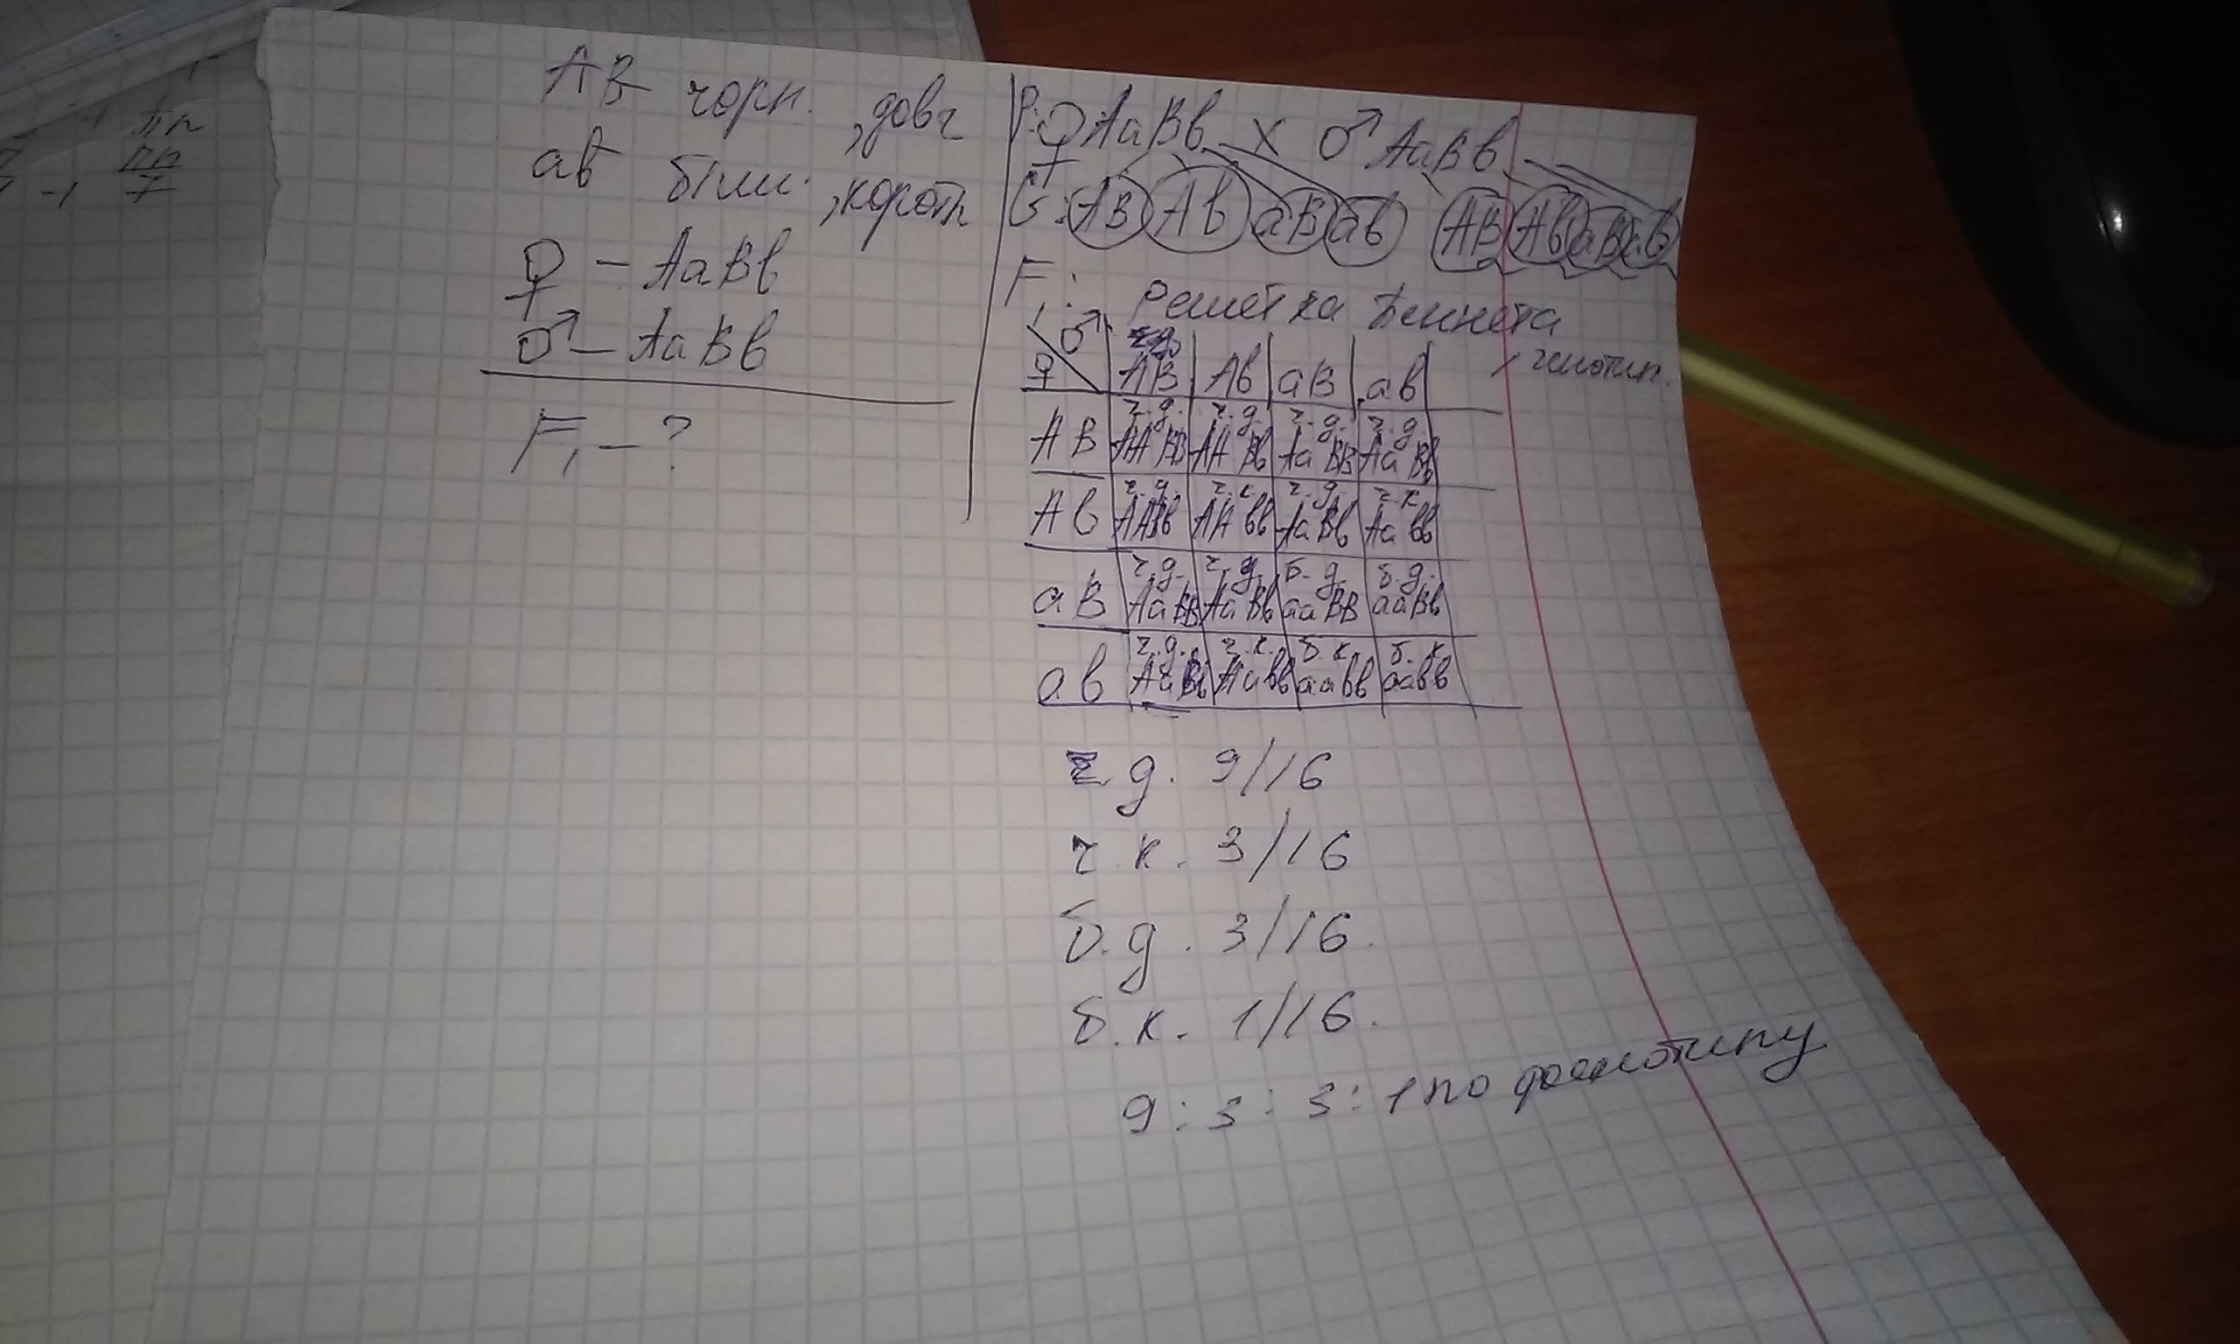 АВ чорн., довг
ав біли., коротк
♀ – АаВв
♂ – АаВв
F₁ – ?
Р: ♀ АаВв × ♂ АаВв
G: АВ Ав аВ ав АВ Ав аВ ав
F₁: Решетка Пеннета
♂ АВ Ав аВ ав
♀
ч.д. ч.д. ч.д. ч.д.
АВ ААВВ ААВв АаВВ АаВв
ч.д. ч.к. ч.д. ч.к
Ав ААВв ААвв АаВв Аавв
ч.д. ч.д. б.д. б.д.
аВ АаВВ АаВв ааВВ ааВв
ч.д. ч.к. б.к. б.к
ав АаВв Аавв аавв аавв
ч.д. 9/16
ч.к. 3/16
б.д. 3/16.
б.к. 1/16.
9:3:3:1 по фенотипу